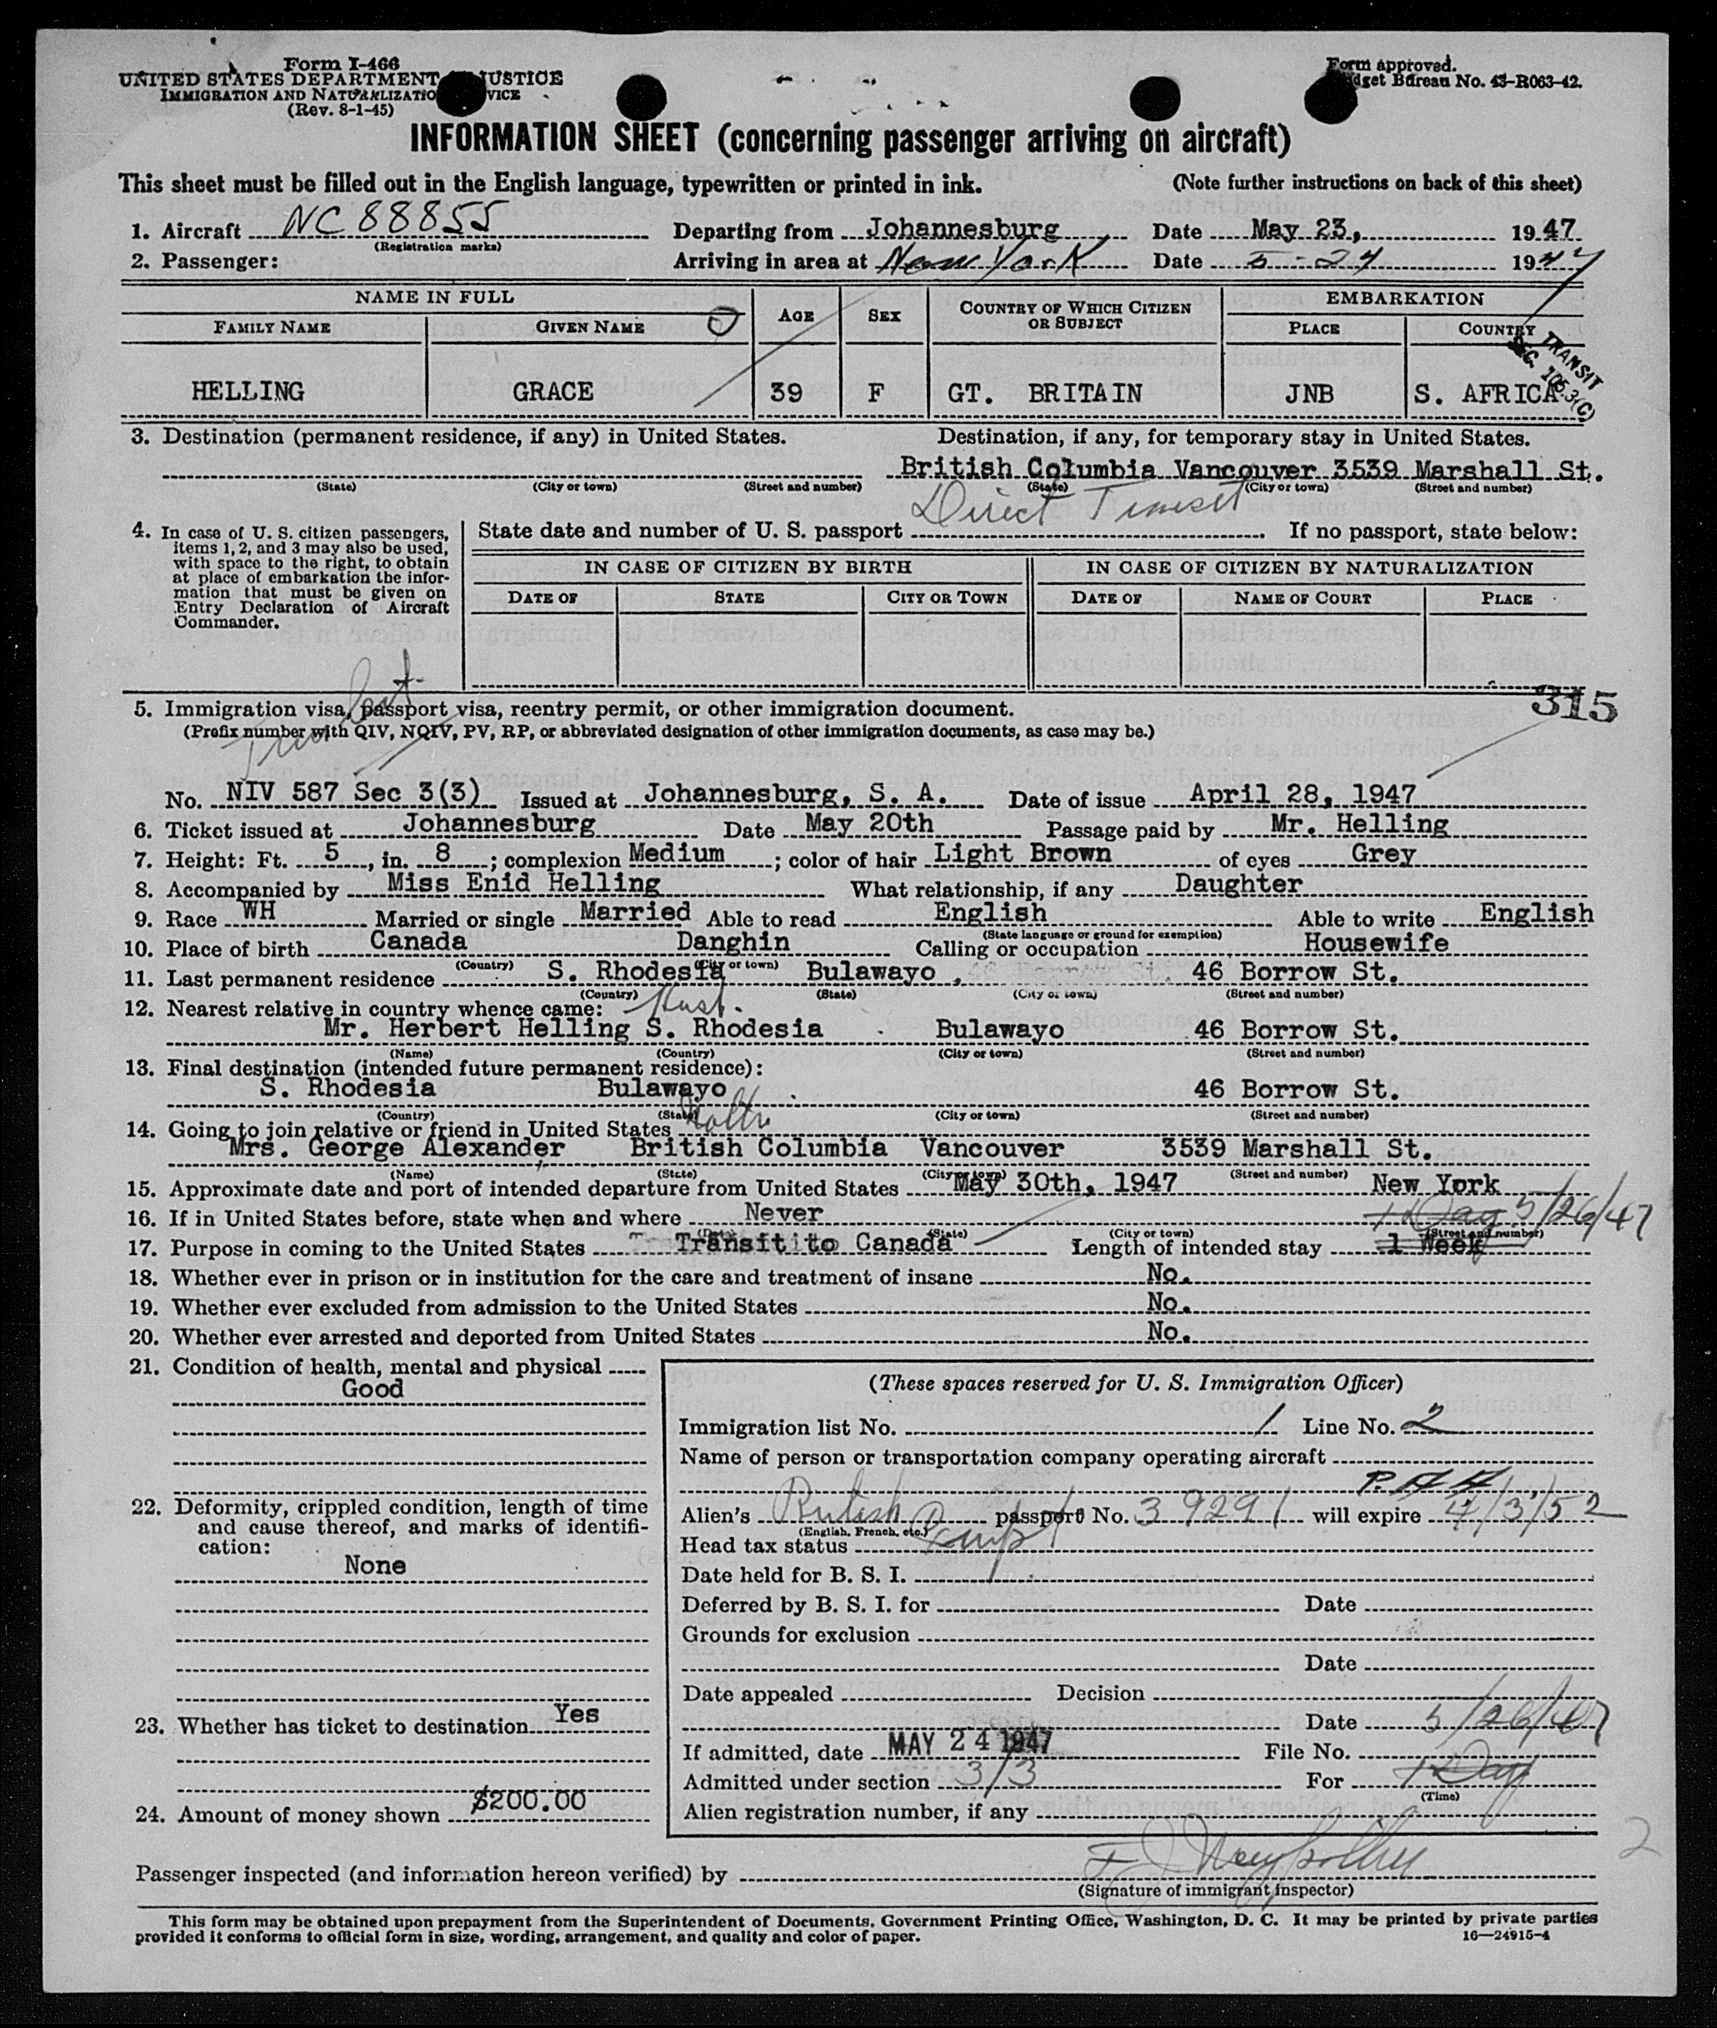 Form I-466
UNITED STATES DEPARTMENT JUSTICE
IMMIGRATION AND NATURALIZATIO VICE
(Rev. 8-1-45)
Form approved.
dget Bureau No. 43-R063-42.
INFORMATION SHEET (concerning passenger arriving on aircraft)
This sheet must be filled out in the English language, typewritten or printed in ink. (Note further instructions on back of this sheet)
1. Aircraft NC88855 Departing from Johannesburg Date May 23, 1947
(Registration marks)
2. Passenger: Arriving in area at New York Date 5-24 1947
NAME IN FULL AGE SEX COUNTRY OF WHICH CITIZEN OR SUBJECT EMBARKATION
FAMILY NAME GIVEN NAME PLACE COUNTRY
TRANSIT
SEC. 105.3(C)
HELLING GRACE 39 F GT. BRITAIN JNB S. AFRICA
3. Destination (permanent residence, if any) in United States. Destination, if any, for temporary stay in United States.
British Columbia Vancouver 3539 Marshall St.
(State) (City or town) (Street and number) (State) (City or town) (Street and number)
Direct Transit
4. In case of U. S. citizen passengers, items 1, 2, and 3 may also be used, with space to the right, to obtain at place of embarkation the information that must be given on Entry Declaration of Aircraft Commander.
State date and number of U. S. passport If no passport, state below:
IN CASE OF CITIZEN BY BIRTH IN CASE OF CITIZEN BY NATURALIZATION
DATE OF STATE CITY OR TOWN DATE OF NAME OF COURT PLACE
315
5. Immigration visa, passport visa, reentry permit, or other immigration document.
(Prefix number with QIV, NQIV, PV, RP, or abbreviated designation of other immigration documents, as case may be.)
No. NIV 587 Sec 3(3) Issued at Johannesburg, S. A. Date of issue April 28, 1947
6. Ticket issued at Johannesburg Date May 20th Passage paid by Mr. Helling
7. Height: Ft. 5, in. 8; complexion Medium; color of hair Light Brown of eyes Grey
8. Accompanied by Miss Enid Helling What relationship, if any Daughter
9. Race WH Married or single Married Able to read English Able to write English
(State language or ground for exemption)
10. Place of birth Canada Danghin Calling or occupation Housewife
(Country) (City or town)
11. Last permanent residence S. Rhodesia Bulawayo, 46 Borrow St.
(Country) (State) (City or town) (Street and number)
12. Nearest relative in country whence came: Husb.
Mr. Herbert Helling S. Rhodesia Bulawayo 46 Borrow St.
(Name) (Country) (City or town) (Street and number)
13. Final destination (intended future permanent residence):
S. Rhodesia Bulawayo 46 Borrow St.
(Country) (State) (City or town) (Street and number)
14. Going to join relative or friend in United States
Mrs. George Alexander British Columbia Vancouver 3539 Marshall St.
(Name) (State) (City or town) (Street and number)
15. Approximate date and port of intended departure from United States May 30th, 1947 New York
16. If in United States before, state when and where Never
1 Day 5/26/47
(Date) (State) (City or town) (Street and number)
17. Purpose in coming to the United States Transit to Canada Length of intended stay 1 Week
18. Whether ever in prison or in institution for the care and treatment of insane No.
19. Whether ever excluded from admission to the United States No.
20. Whether ever arrested and deported from United States No.
21. Condition of health, mental and physical
Good
22. Deformity, crippled condition, length of time and cause thereof, and marks of identification:
None
23. Whether has ticket to destination Yes
24. Amount of money shown $200.00
(These spaces reserved for U. S. Immigration Officer)
Immigration list No. 1 Line No. 2
Name of person or transportation company operating aircraft
P.A.A.
Alien's British passport No. 39291 will expire 4/3/52
(English, French, etc.)
Head tax status Exmpt
Date held for B. S. I.
Deferred by B. S. I. for Date
Grounds for exclusion
Date
Date appealed Decision
Date 5/26/47
If admitted, date MAY 24 1947 File No.
Admitted under section 3/3 For 1 Day
(Time)
Alien registration number, if any
2
Passenger inspected (and information hereon verified) by
(Signature of immigrant inspector)
This form may be obtained upon prepayment from the Superintendent of Documents, Government Printing Office, Washington, D. C. It may be printed by private parties
provided it conforms to official form in size, wording, arrangement, and quality and color of paper.
16—24915-4